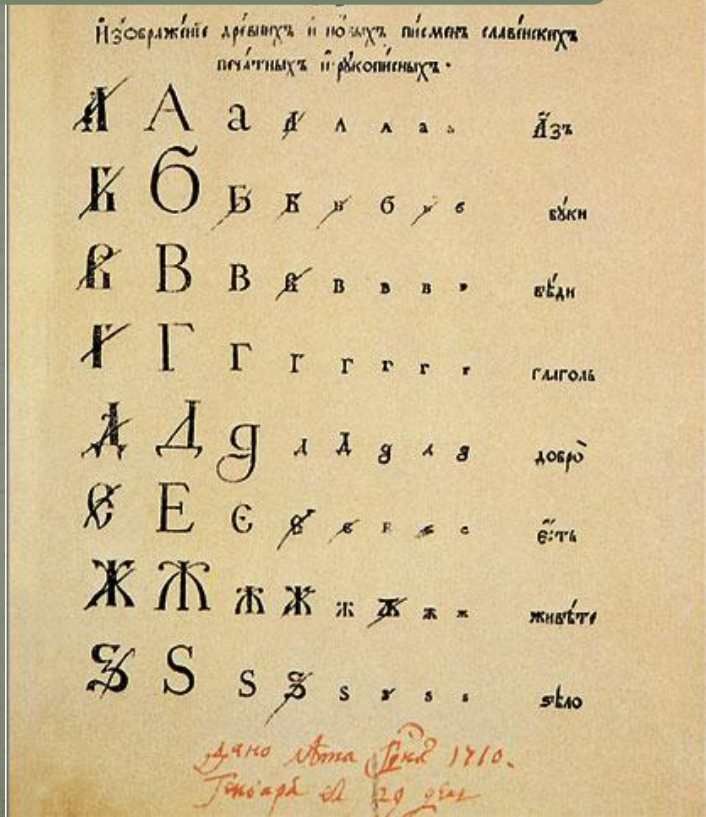 Изображе́нїе дре́внихъ и но́выхъ пи́сменъ славе́нскихъ
печа́тныхъ и рꙋкопи́сныхъ.
А А а а а а а а А҆́зъ
Б Б Б Б б б б б бꙋ́ки
В В в в в в в в вѣ́ди
Г Г г г г г г г глаго́ль
Д Д д д Д д д д добро̀
Є Е є є є е є е є҆́сть
Ж Ж ж ж ж ж ж ж живѣ́те
Ѕ Ѕ ѕ ѕ ѕ ѕ ѕ ѕ ѕѣло̀
дано лѣта 1710.
Генваря 29 день